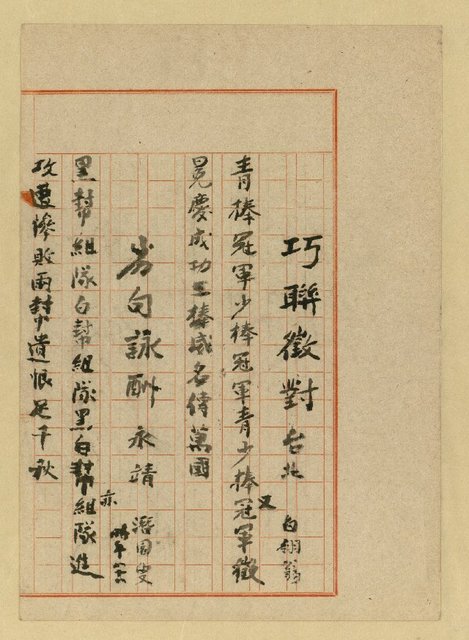 巧聯徵對 台北 白翎翁
青棒冠軍少棒冠軍青少棒又冠軍徵
冕慶成功三棒威名傳萬國
劣句詠酬 永靖
黑幫組隊白幫組隊黑白幫亦組隊進
攻遭慘敗兩幫遺恨足千秋